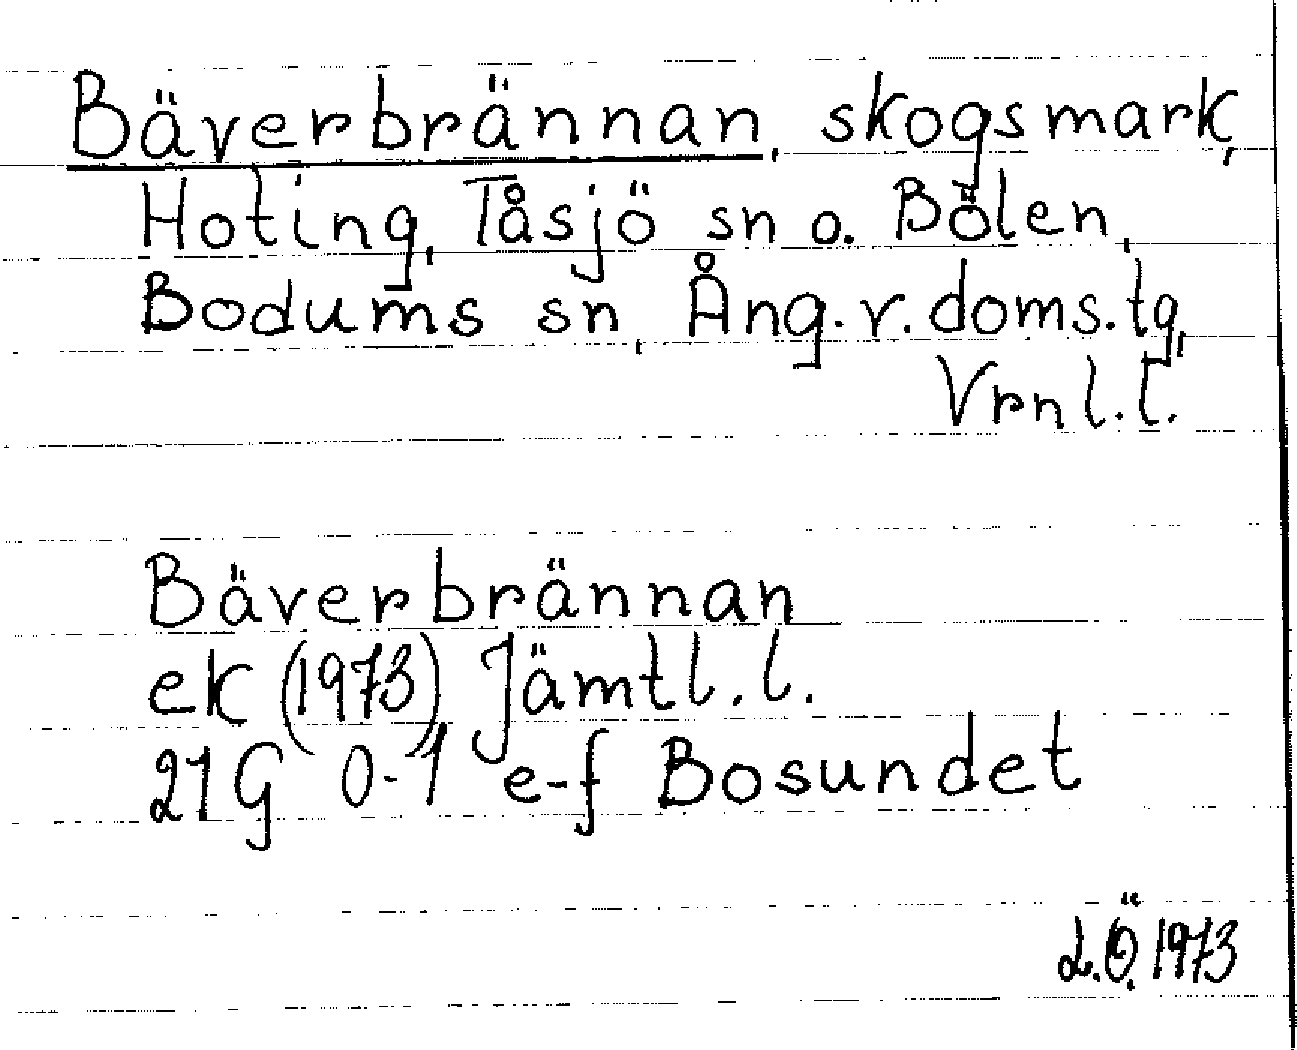 Bäverbrännan, skogsmark,
Hoting, Tåsjö sn o. Bölen,
Bodums sn, Ång. v. doms. tg,
Vrnl. l.
Bäverbrännan
ek (1973), Jämtl. l.
21G 0-1 e-f Bosundet
L.Ö. 1973